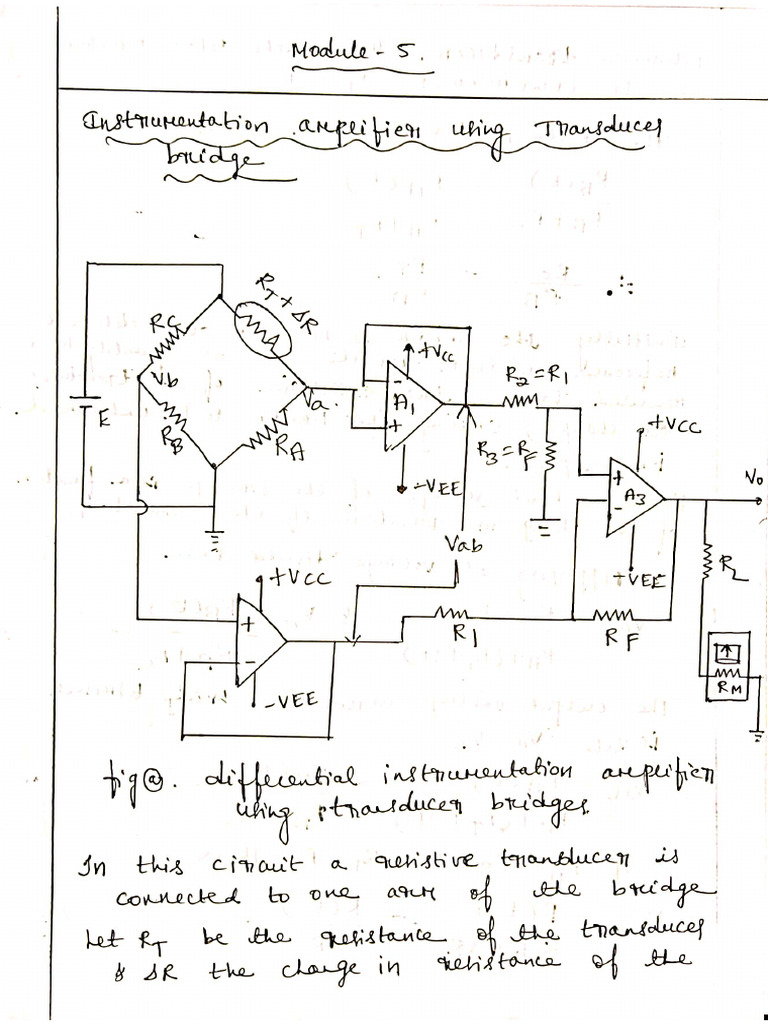 Module - 5.
Instrumentation amplifier using Transducer
bridge
RC
RT + ΔR
Vb
Va
E
RB
RA
+Vcc
-
A1
+
-VEE
R2 = R1
R3 = RF
+VCC
+
A3
-
+VEE
Vo
Vab
+VCC
+
-
-VEE
R1
RF
RL
RM
fig ⓐ. differential instrumentation amplifier
using transducer bridges
In this circuit a resistive transducer is
connected to one arm of the bridge
Let RT be the resistance of the transducer
& ΔR the change in resistance of the